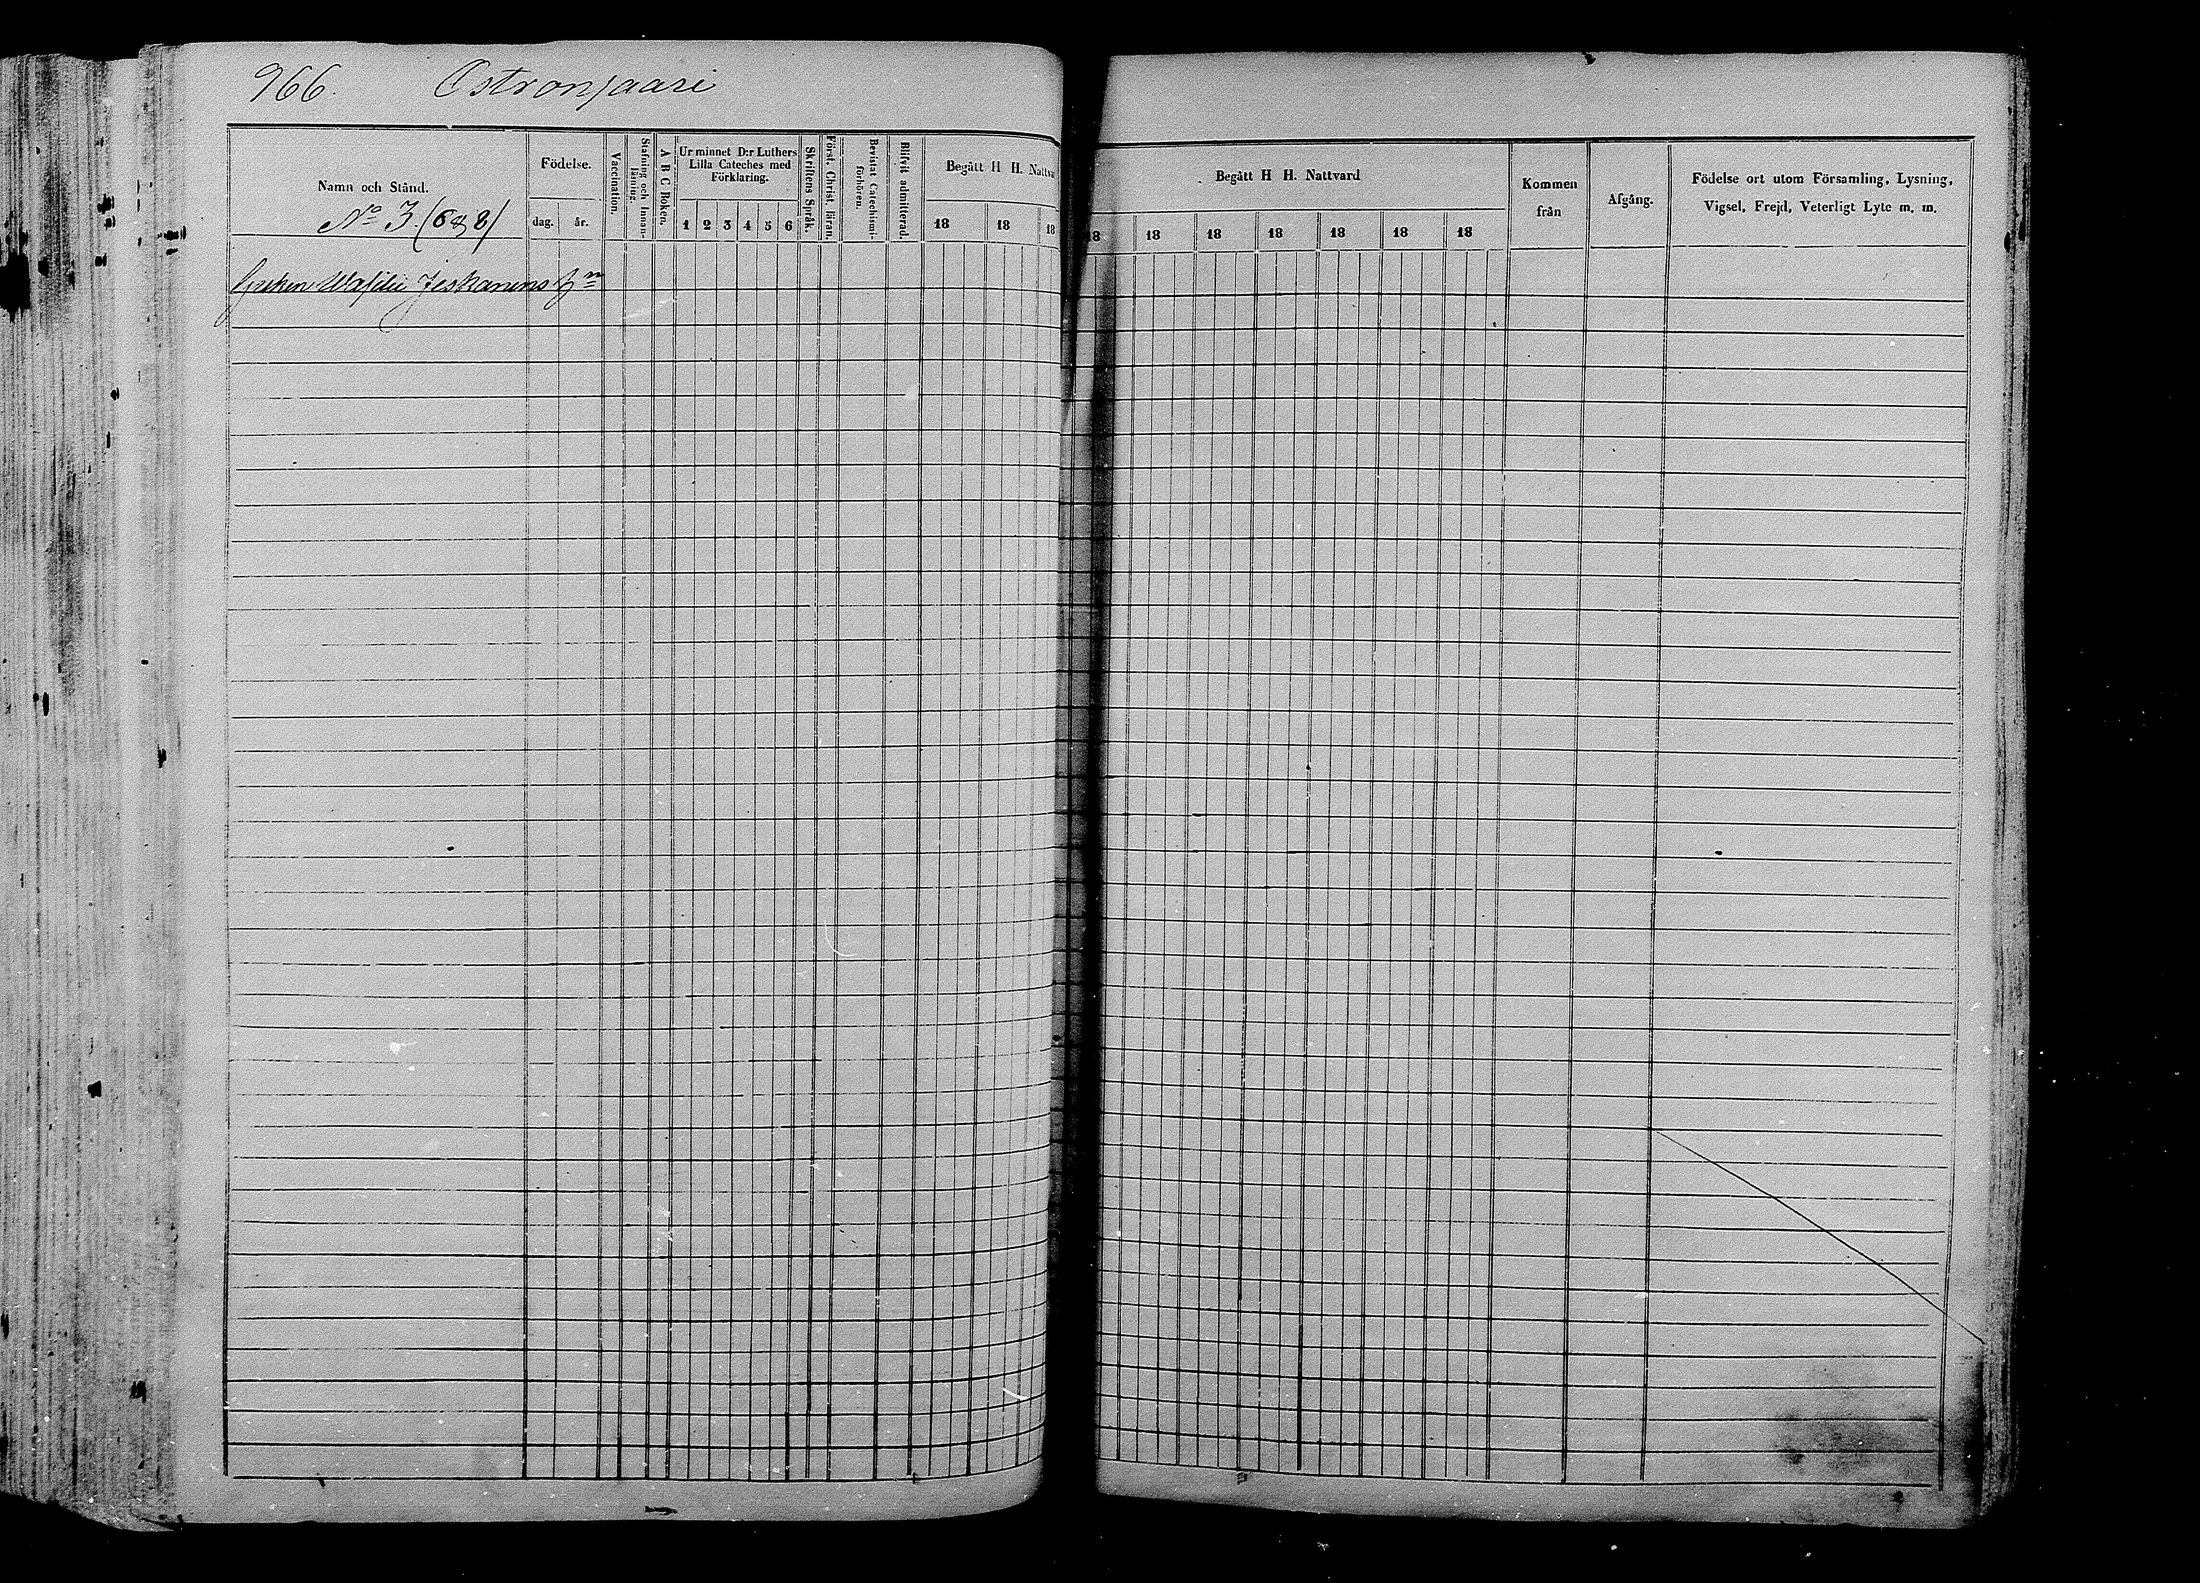 966. Ostronsaari
Namn och Stånd.
No 3. (6 & 8)
Födelse.
dag. år.
Vaccination.
Stafning och Innan-
läsning.
A B C Boken.
Ur minnet D:r Luthers
Lilla Cateches med
Förklaring.
1 2 3 4 5 6
Skriftens Språk.
Först. Christ. läran.
Bevistat Catechismi-
förhören.
Blifvit admitterad.
Begått H H. Nattva
18 18 18
Begått H H. Nattvard
18 18 18 18 18 18 18
Kommen
från
Afgång.
Födelse ort utom Församling, Lysning,
Vigsel, Frejd, Veterligt Lyte m. m.
Greken Wasilei Jeskanens